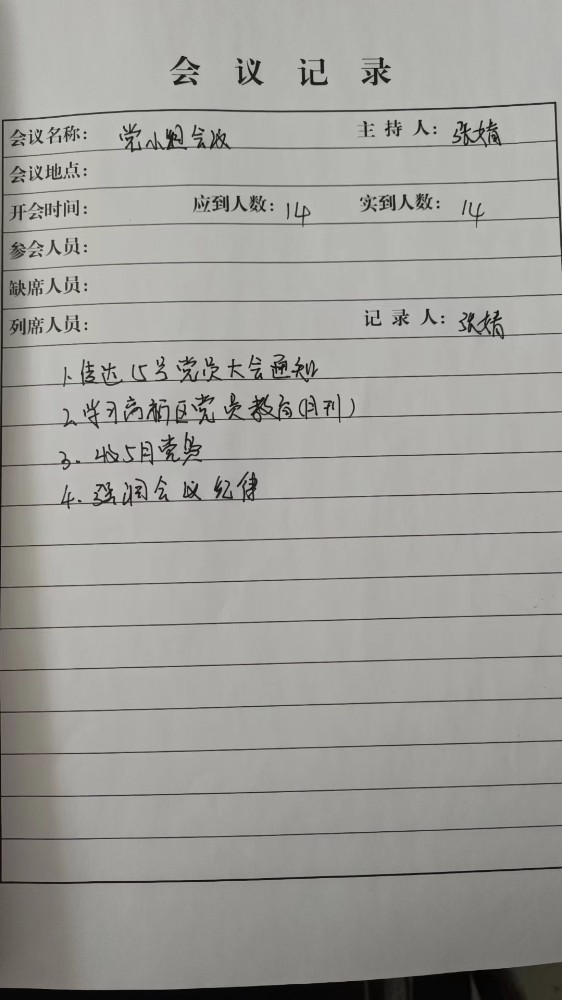 会议记录
会议名称：党小组会议 主持人：张婧
会议地点：
开会时间： 应到人数：14 实到人数：14
参会人员：
缺席人员：
列席人员： 记录人：张婧
1.传达15号党员大会通知
2.学习高新区党员教育(月刊)
3.收5月党费
4.强调会议纪律